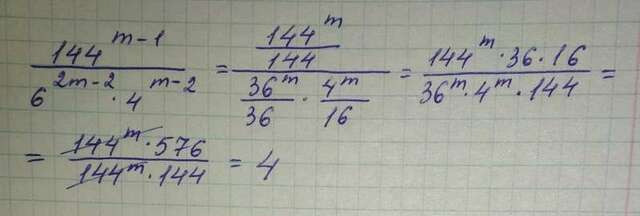 144^(m-1) / (6^(2m-2) · 4^(m-2)) = (144^m / 144) / (36^m / 36 · 4^m / 16) = (144^m · 36 · 16) / (36^m · 4^m · 144) =
= (144^m · 576) / (144^m · 144) = 4